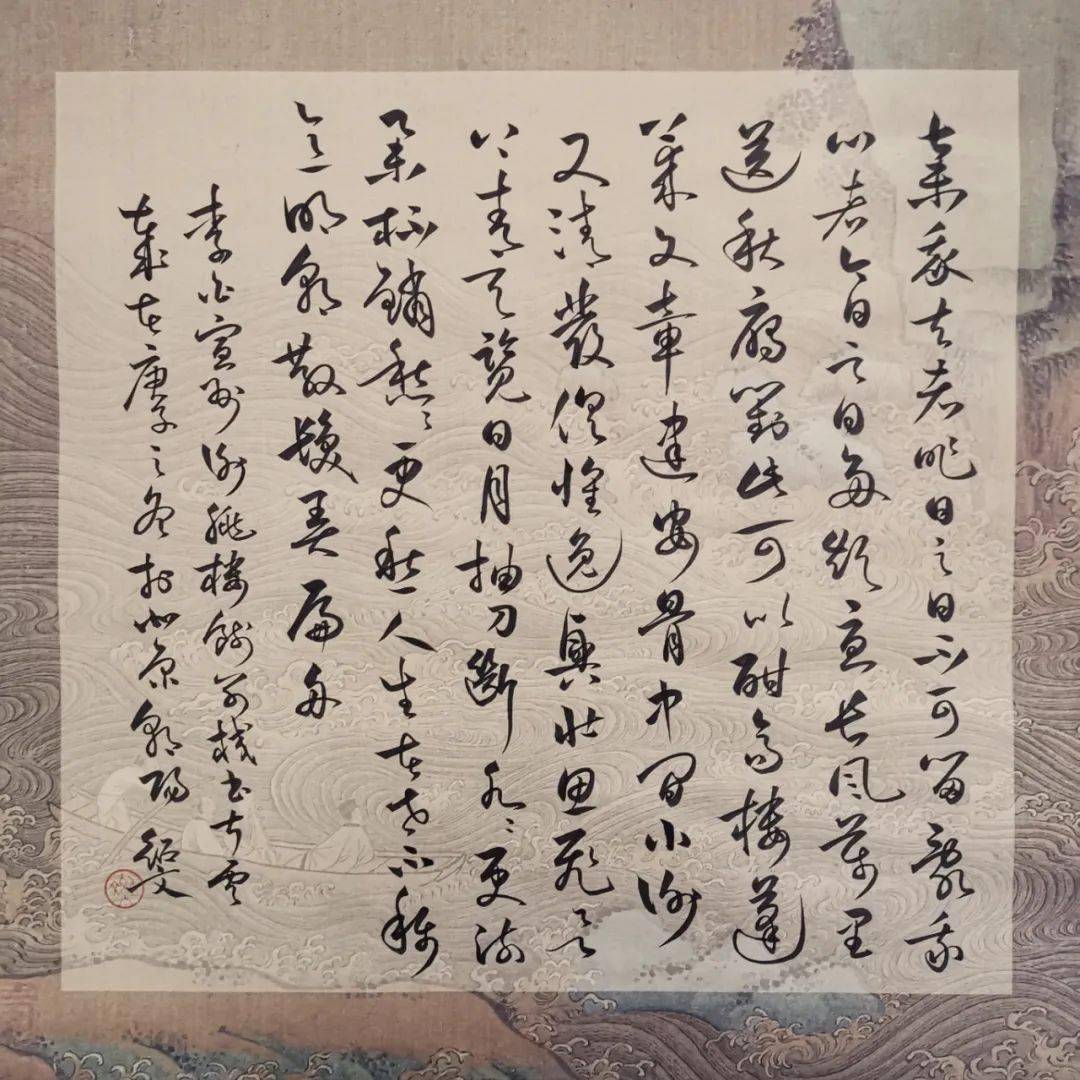 棄我去者昨日之日不可留亂我
心者今日之日多煩憂長風萬里
送秋雁對此可以酣高樓蓬
萊文章建安骨中間小謝
又清發俱懷逸興壯思飛欲
上青天覽日月抽刀斷水々更流
舉杯銷愁々更愁人生在世不稱
意明朝散髮弄扁舟
李白宣州謝朓樓餞別校書叔雲
歲在庚子之冬於北京朝陽